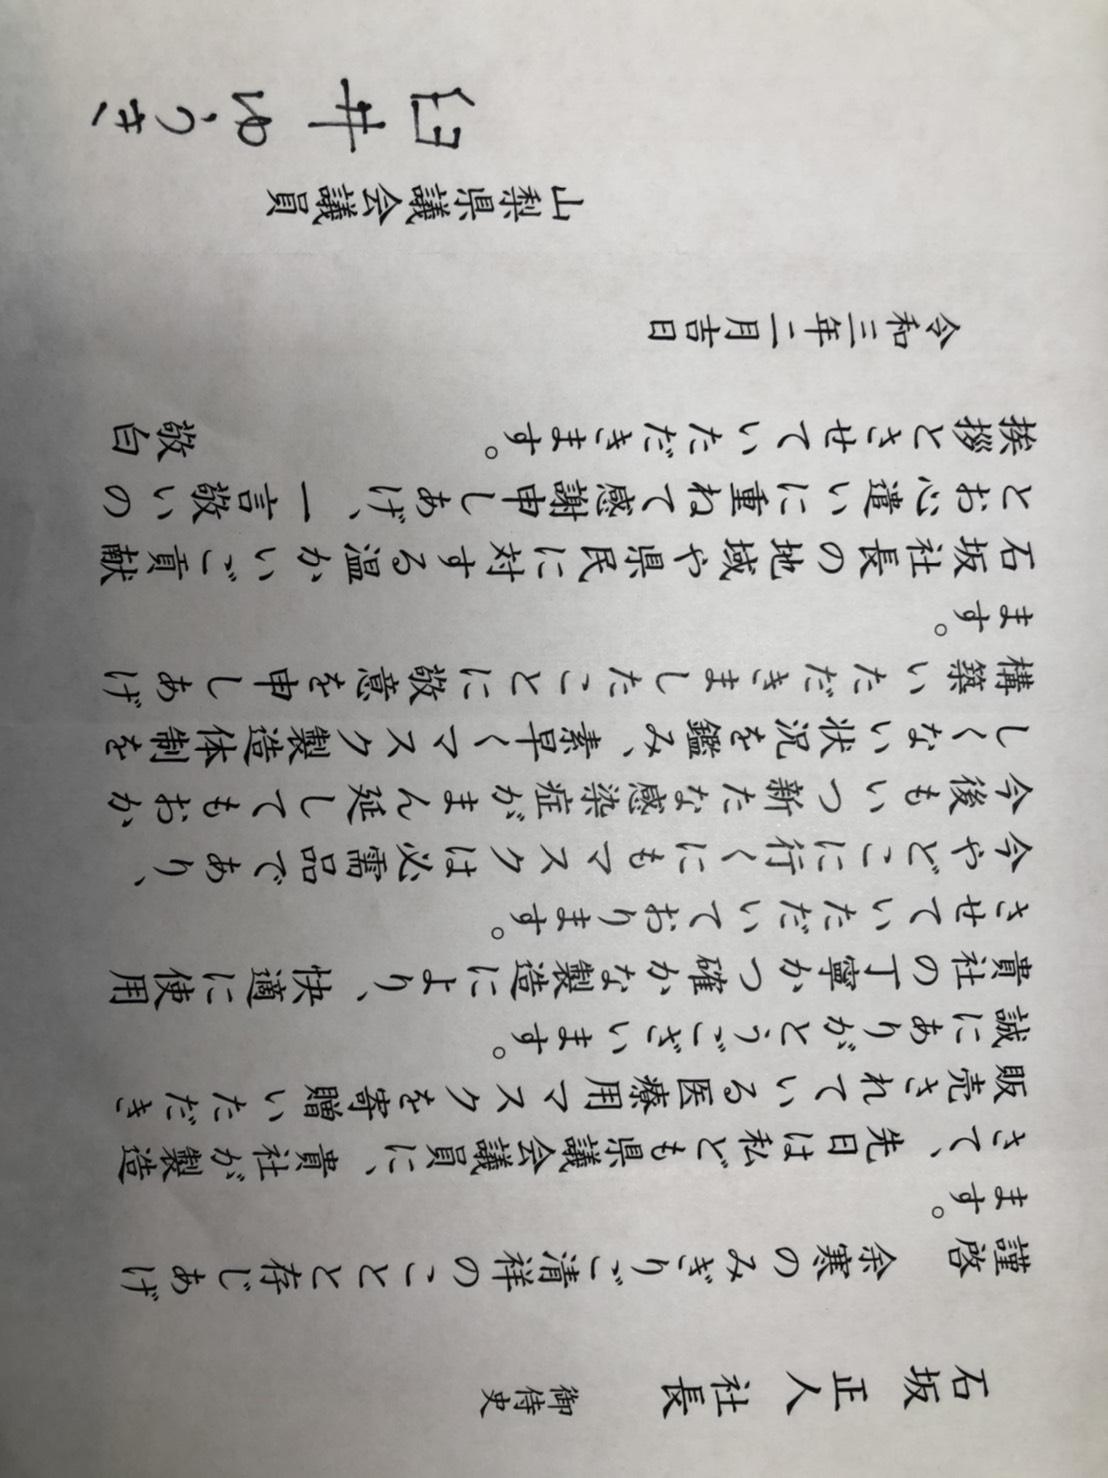 石坂 正人 社長 御侍史
謹啓 余寒のみぎりご清祥のことと存じあげ
ます。
さて、先日は私ども県議会議員に、貴社が製造
販売されている医療用マスクを寄贈いただき
誠にありがとうございます。
貴社の丁寧かつ確かな製造により、快適に使用
させていただいております。
今やどこに行くにもマスクは必需品であり、
今後もいつ新たな感染症がまん延してもおか
しくない状況を鑑み、素早くマスク製造体制を
構築いただきましたことに敬意を申しあげ
ます。
石坂社長の地域や県民に対する温かいご貢献
とお心遣いに重ねて感謝申しあげ、一言敬いの
挨拶とさせていただきます。 敬白
令和三年二月吉日
山梨県議会議員
臼井ゆうき